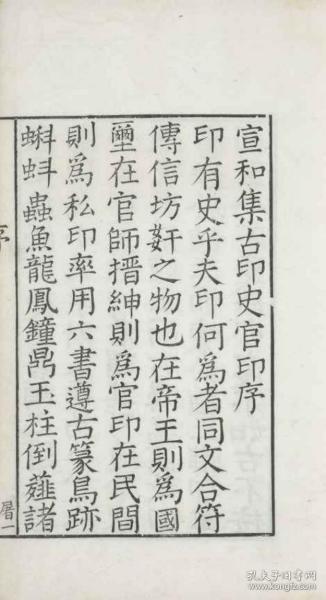 宣和集古印史官印序
印有史乎夫印何爲者同文合符
傳信坊姦之物也在帝王則爲國
璽在官師搢紳則爲官印在民間
則爲私印率用六書遵古篆鳥跡
蝌蚪蟲魚龍鳳鐘鼎玉柱倒薤諸
序
孔夫子旧书网
www.kongfz.com